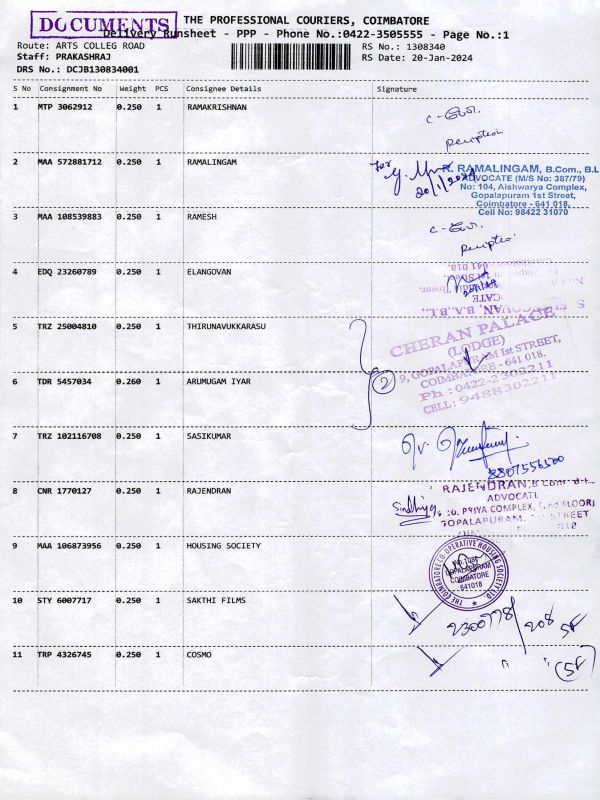 DOCUMENTS
THE PROFESSIONAL COURIERS, COIMBATORE
Delivery Runsheet - PPP - Phone No.:0422-3505555 - Page No.:1
Route: ARTS COLLEG ROAD
RS No.: 1308340
Staff: PRAKASHRAJ
RS Date: 20-Jan-2024
DRS No.: DCJB130834001
S No Consignment No Weight PCS Consignee Details Signature
1 MTP 3062912 0.250 1 RAMAKRISHNAN
2 MAA 572881712 0.250 1 RAMALINGAM
for
20/1/2024
R. RAMALINGAM, B.Com., B.L
ADVOCATE (M/S No: 387/79)
No: 104, Aishwarya Complex,
Gopalapuram 1st Street,
Coimbatore - 641 018.
Cell No: 98422 31070
3 MAA 108539883 0.250 1 RAMESH
4 EDQ 23260789 0.250 1 ELANGOVAN
641 018.
5 TRZ 25004810 0.250 1 THIRUNAVUKKARASU
CHERAN PALACE
(LODGE)
9, GOPALAPURAM Ist STREET,
COIMBATORE - 641 018.
Ph : 0422-2302211
CELL: 9488302211
6 TDR 5457034 0.260 1 ARUMUGAM IYAR
2
7 TRZ 102116708 0.250 1 SASIKUMAR
8 CNR 1770127 0.250 1 RAJENDRAN
RAJENDRAN, B.Com., B.L
ADVOCATE
PRIYA COMPLEX, FLOOR)
GOPALAPURAM, STREET
Sindhiya
9 MAA 106873956 0.250 1 HOUSING SOCIETY
THE COIMBATORE CO-OPERATIVE HOUSING SOCIETY LTD.
GOPALAPURAM
COIMBATORE
641018
10 STY 6007717 0.250 1 SAKTHI FILMS
2300778/208 SF
11 TRP 4326745 0.250 1 COSMO
" " (SF)